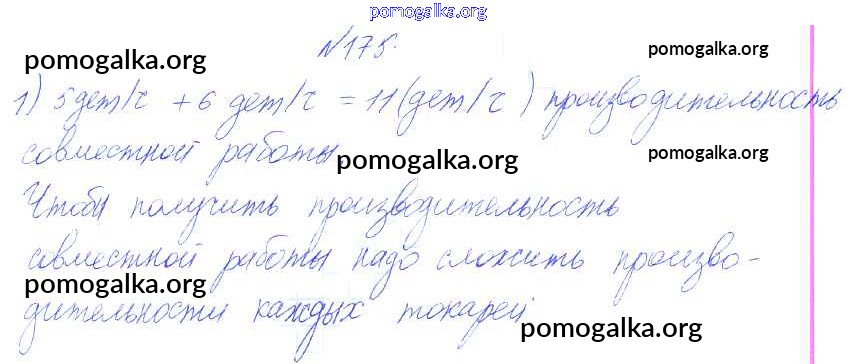 pomogalka.org
№175.
pomogalka.org pomogalka.org
1) 5 дет/г + 6 дет/г = 11 (дет/г) производительность
совместной работы
pomogalka.org pomogalka.org
Чтобы получить производительность
совместной работы надо сложить произво-
pomogalka.org
дительности каждых токарей
pomogalka.org